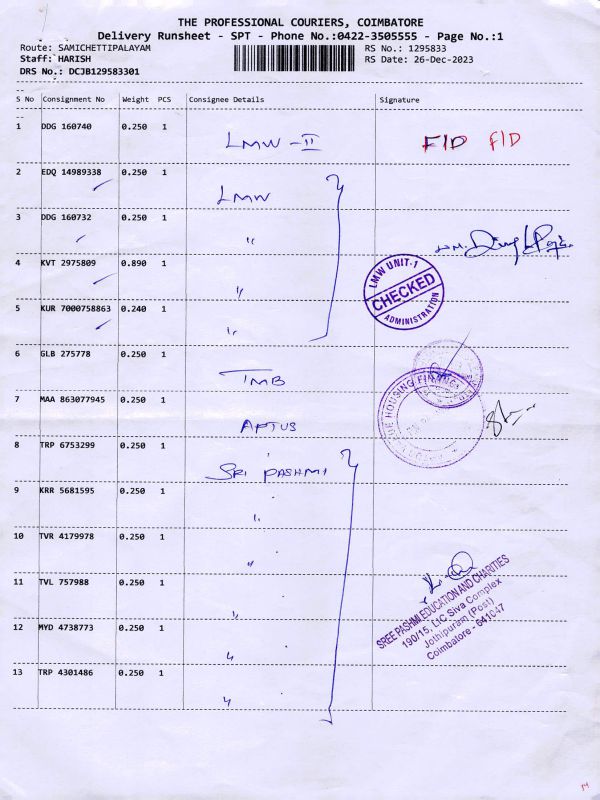 THE PROFESSIONAL COURIERS, COIMBATORE
Delivery Runsheet - SPT - Phone No.:0422-3505555 - Page No.:1
Route: SAMICHETTIPALAYAM RS No.: 1295833
Staff: HARISH RS Date: 26-Dec-2023
DRS No.: DCJB129583301
S No Consignment No Weight PCS Consignee Details Signature
1 DDG 160740 0.250 1 LMW - II F/D F/D
2 EDQ 14989338 0.250 1 LMW
3 DDG 160732 0.250 1 "
4 KVT 2975809 0.890 1 "
LMW UNIT-1
CHECKED
ADMINISTRATION
5 KUR 7000758863 0.240 1 "
6 GLB 275778 0.250 1 TMB
7 MAA 863077945 0.250 1 APTUS
HOUSING FINANCE
8 TRP 6753299 0.250 1 SRI PASHMI
9 KRR 5681595 0.250 1 "
10 TVR 4179978 0.250 1 "
11 TVL 757988 0.250 1 "
SREE PASHMI EDUCATION AND CHARITIES
190/15, LIC Siva Complex
Jothipuram (Post)
Coimbatore - 641047
12 MYD 4738773 0.250 1 "
13 TRP 4301486 0.250 1 "